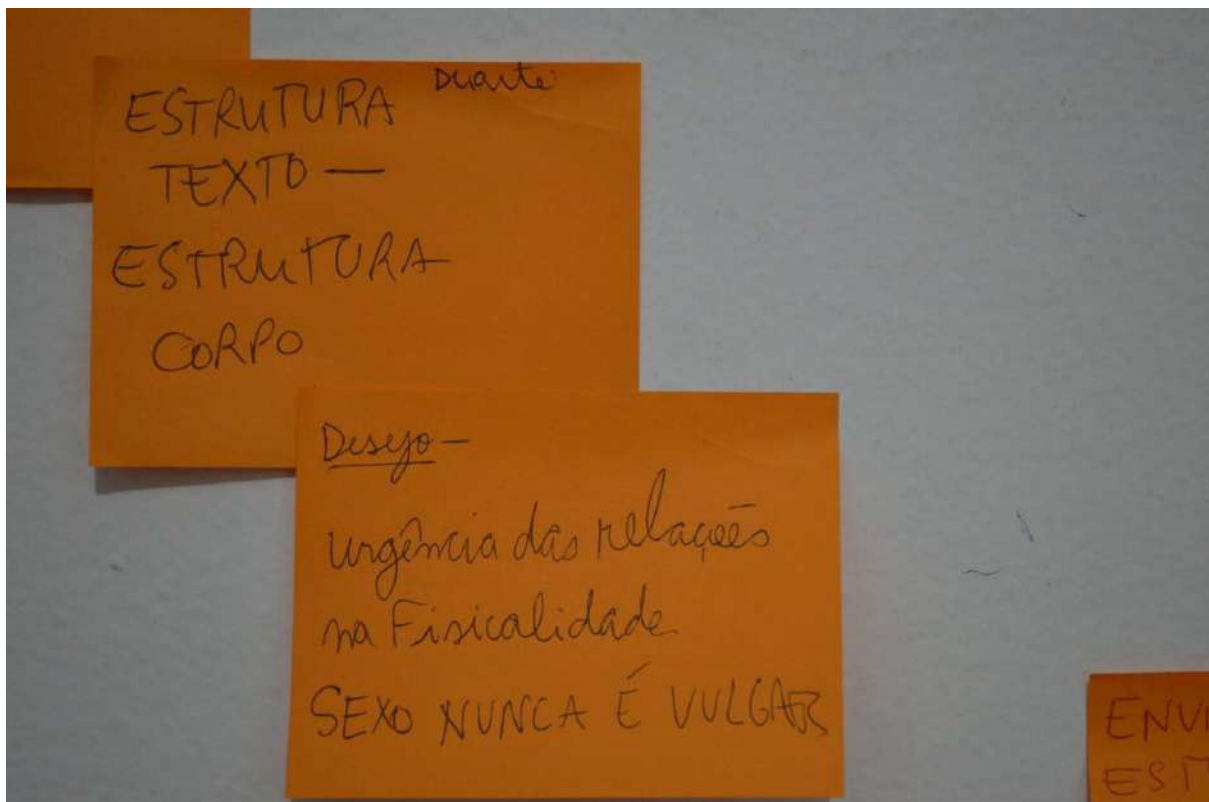 Duarte:
ESTRUTURA
TEXTO —
ESTRUTURA
CORPO
Desejo —
urgência das relações
na Fisicalidade
SEXO NUNCA É VULGAR